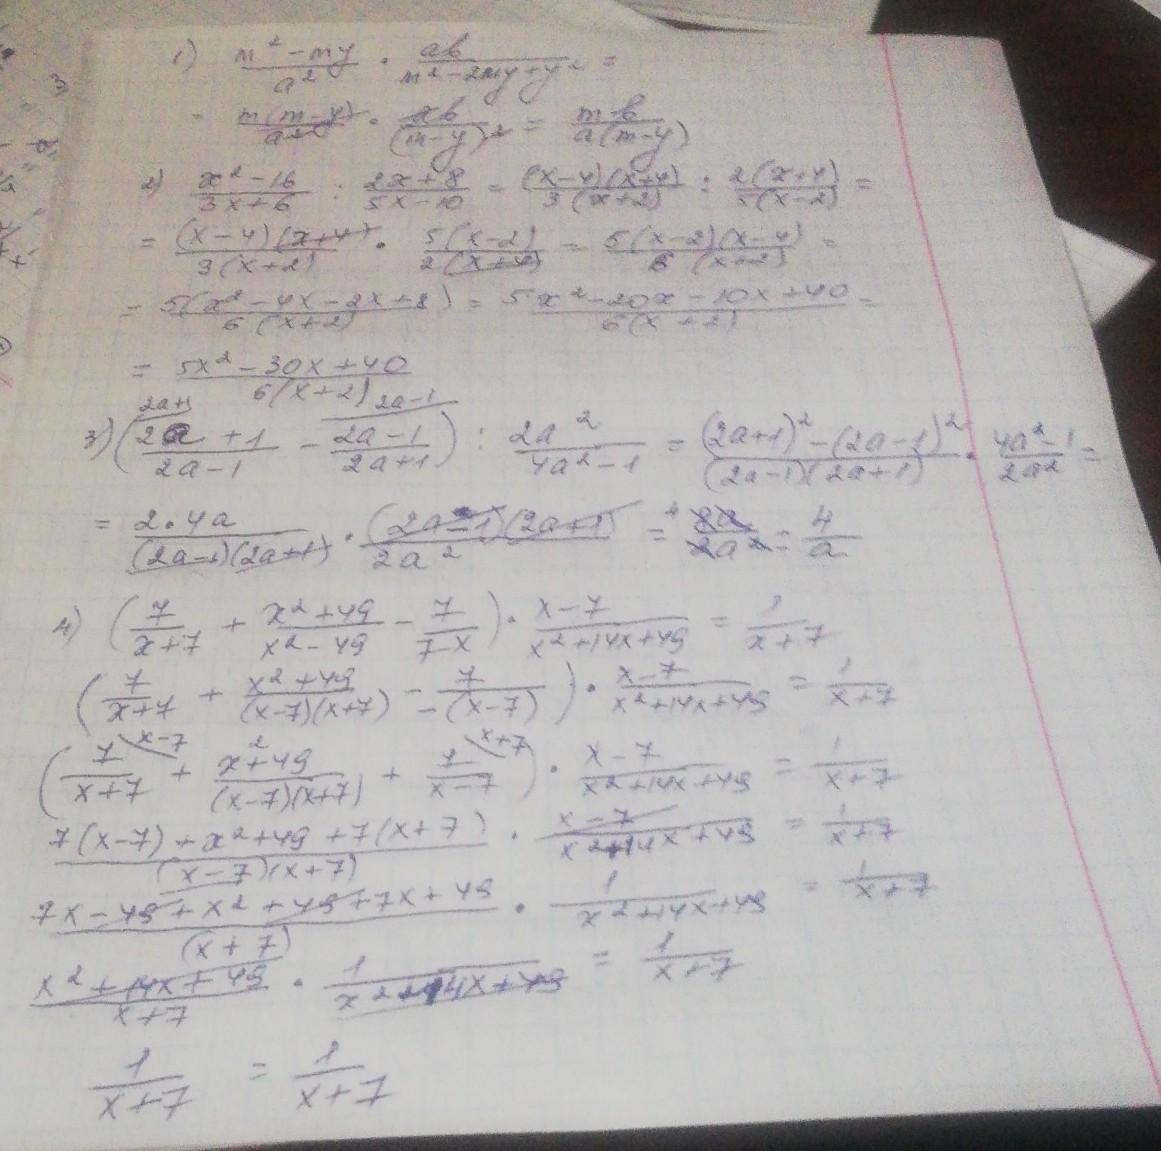 1) (m² - my)/a² · ab/(m² - 2my + y²) =
= m(m - y)/a² · ab/(m - y)² = mb/a(m - y)
2) (x² - 16)/(3x + 6) : (2x + 8)/(5x - 10) = (x - 4)(x + 4)/3(x + 2) : 2(x + 4)/5(x - 2) =
= (x - 4)(x + 4)/3(x + 2) · 5(x - 2)/2(x + 4) = 5(x - 2)(x - 4)/6(x + 2) =
= 5(x² - 4x - 2x + 8)/6(x + 2) = (5x² - 20x - 10x + 40)/6(x + 2) =
= (5x² - 30x + 40)/6(x + 2)
2a+1 2a-1
3) ((2a + 1)/(2a - 1) - (2a - 1)/(2a + 1)) : 2a²/(4a² - 1) = ((2a + 1)² - (2a - 1)²)/(2a - 1)(2a + 1) · (4a² - 1)/2a² =
= 2·4a/(2a - 1)(2a + 1) · (2a - 1)(2a + 1)/2a² = 4 8a/2a² = 4/a
4) (7/(x + 7) + (x² + 49)/(x² - 49) - 7/(7 - x)) · (x - 7)/(x² + 14x + 49) = 1/(x + 7)
(7/(x + 7) + (x² + 49)/(x - 7)(x + 7) - 7/-(x - 7)) · (x - 7)/(x² + 14x + 49) = 1/(x + 7)
x-7 x+7
(7/(x + 7) + (x² + 49)/(x - 7)(x + 7) + 7/(x - 7)) · (x - 7)/(x² + 14x + 49) = 1/(x + 7)
(7(x - 7) + x² + 49 + 7(x + 7))/(x - 7)(x + 7) · (x - 7)/(x² + 14x + 49) = 1/(x + 7)
(7x - 49 + x² + 49 + 7x + 49)/(x + 7) · 1/(x² + 14x + 49) = 1/(x + 7)
(x² + 14x + 49)/(x + 7) · 1/(x² + 14x + 49) = 1/(x + 7)
1/(x + 7) = 1/(x + 7)